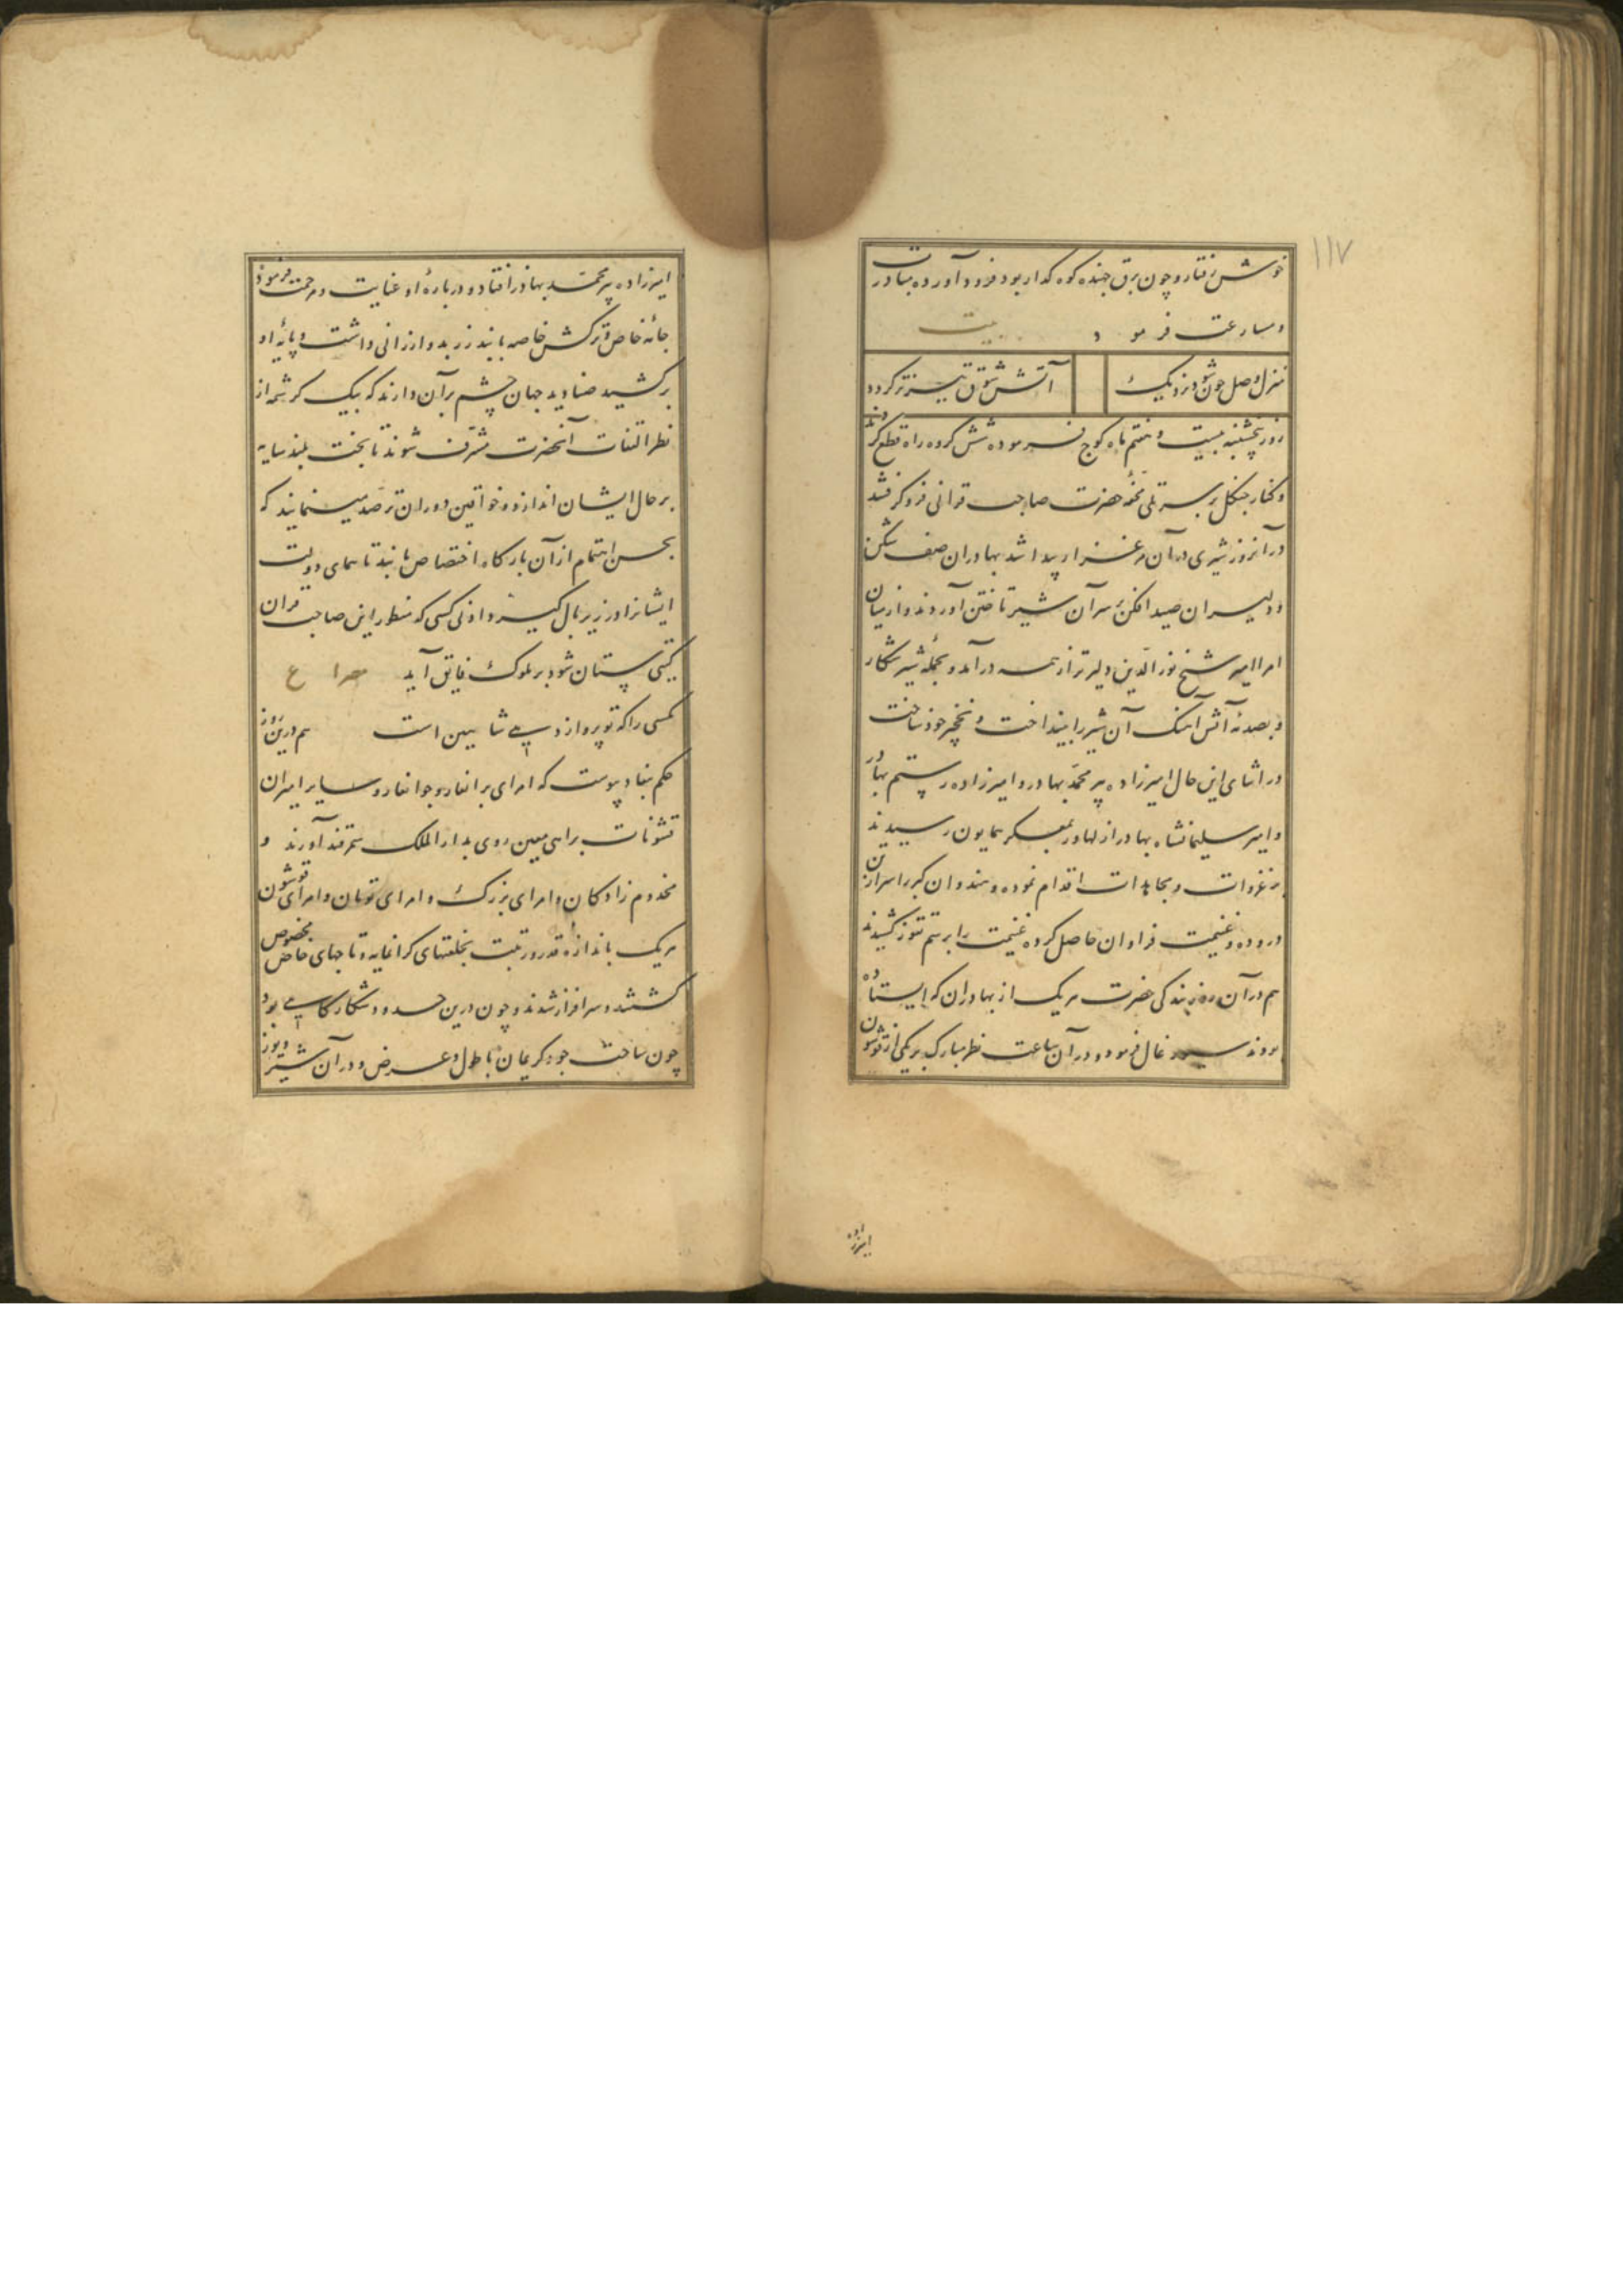 ۱۱۷
خوش رفتار و چون برق جهنده کوه کذار بود فرود آورده مبادرت
و مسارعت فرمود بیت
منزل وصل چون شود نزدیک آتش شوق تیزتر کردد
روز پنجشنبه بیست و هفتم ماه کوچ فرموده شش کروه راه قطع کردند
و کنار جنکل بر سر تلی حضرت صاحب قرانی فرو کرفتند
در آنروز شیری در آن مرغزار پیدا شد بهادران صف شکن
و دلیران صید افکن بر سر آن شیر تاختن آوردند و از میان
امرا امیر شیخ نور الدین دلیرتر از همه درآمد و بحمله شیر شکار
و بصدمه آتش آهنک آن شیر را بینداخت و نخچیر خود ساخت
در اثنای این حال امیرزاده پیر محمد بهادر و امیرزاده رستم بهادر
و امیر سلیمانشاه بهادر از لهاور بمعسکر همایون رسیدند
بر غزوات و مجاهدات اقدام نموده و هندوان کبر را سر از تن
دروده و غنیمت فراوان حاصل کرده غنیمت را برسم تقوز کشیدند
هم در آن روز بندکی حضرت هر یک از بهادران که ایستاده
بودند سیورغال فرمود و در آن ساعت نظر مبارک بر یکی از قوشون
امیرزاده
امیرزاده پیر محمد بهادر افتاد و درباره او عنایت و مرحمت فرمود
جامه خاص و ترکش خاصه با بند زر بدو ارزانی داشت و پایه او
برکشید صنادید جهان چشم بر آن دارند که بیک کرشمه از
نظر التفات آنحضرت مشرف شوند تا بخت بلند سایه
بر حال ایشان اندازد و خواقین دوران ترصد مینمایند که
بحسن اهتمام از آن بارکاه اختصاص یابند تا همای دولت
ایشانرا در زیر بال کیرد و ادنی کسی که منظور این صاحب قران
کیتی ستان شود بر ملوک فایق آید مصرع
کسی را که تو پرواز دهی شاهین است هم درین روز
حکم بنفاذ پیوست که امرای برانغار و جوانغار و سایر امیران
قشونات براهی معین روی بدار الملک سمرقند آورند و
مخدوم زادکان و امرای بزرک و امرای تومان و امرای قوشون
هر یک باندازه قدر و رتبت بخلعتهای کرانمایه و تاجهای خاص مخصوص
کشتند و سرافراز شدند و چون درین حدود شکارکاهی بود
چون ساحت جود کریمان با طول و عرض و در آن شیر و یوز